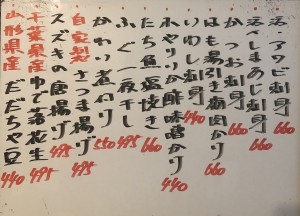 活・アワビ刺身
活・しまあじ刺身 660
かつお刺身 660
はも湯引き梅肉かけ
いわし刺身 440
水やりいか酢味噌かけ 440
たち魚塩焼き 660
ふぐ一夜干し 495
かわり煮付け 550
自家製さつま揚げ 495
スズキの唐揚げ 495
千葉県産ゆで落花生 495
山形県産だだちゃ豆 440